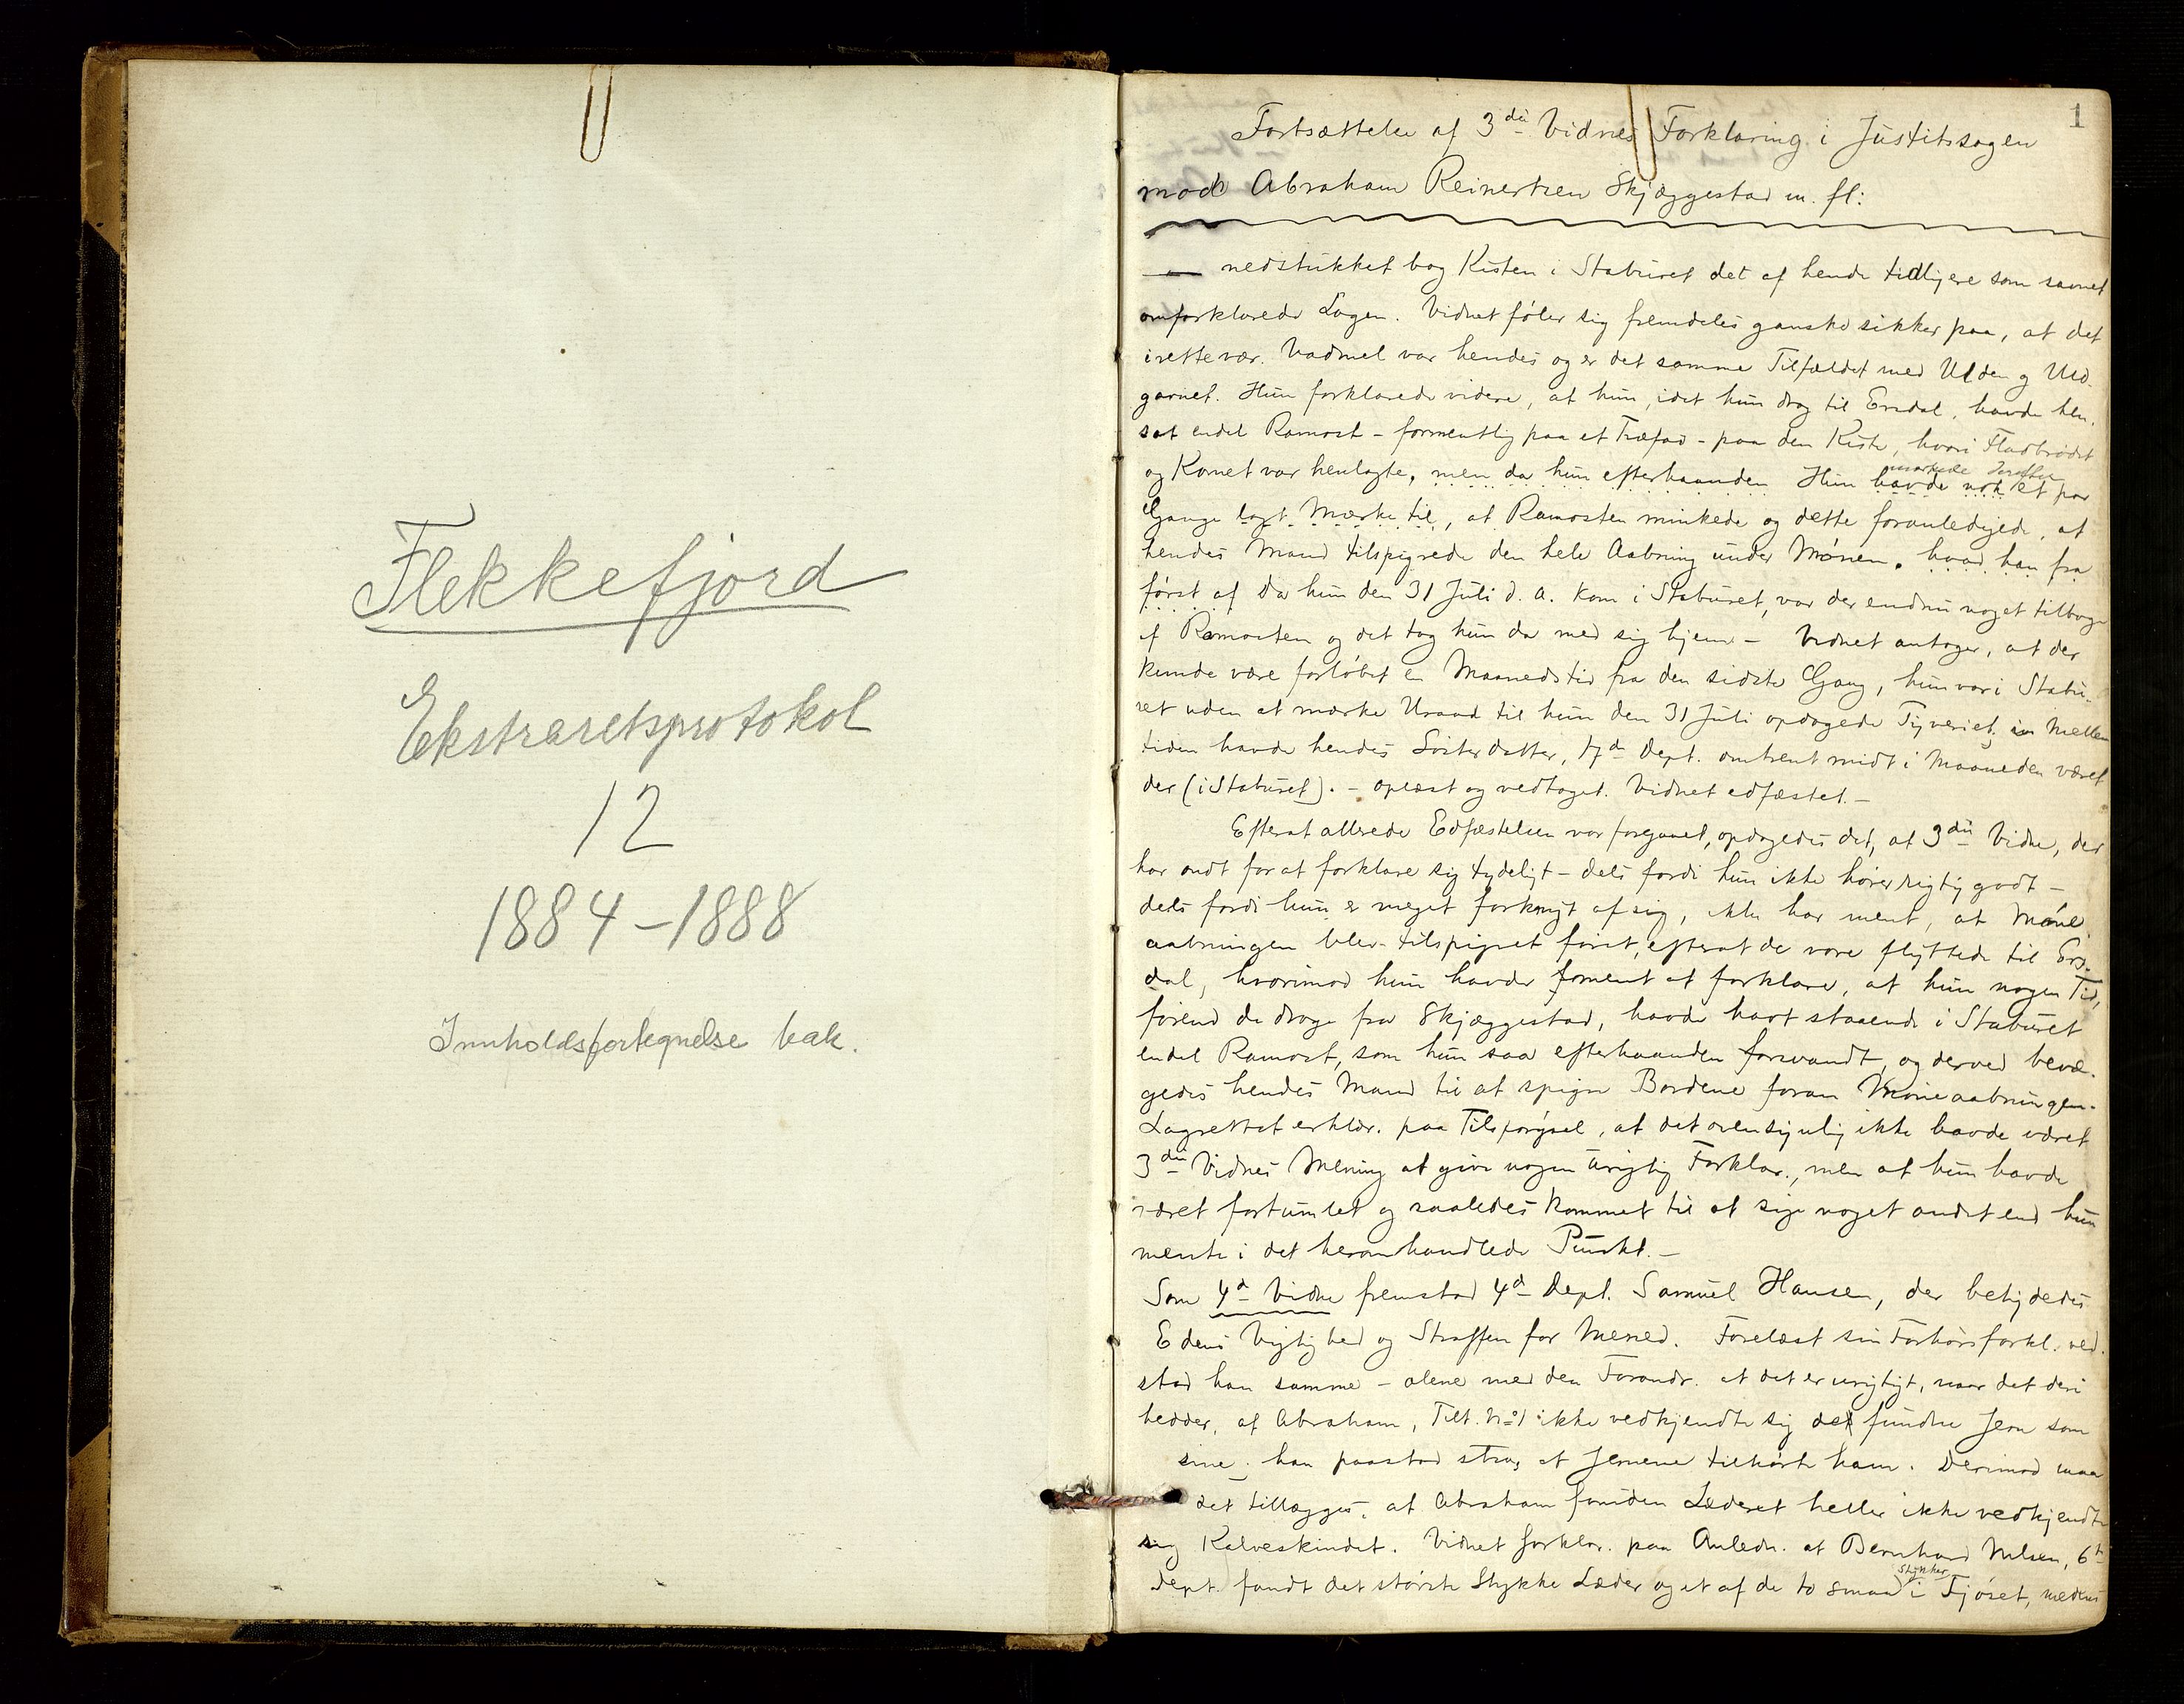 Flekkefjord
Ekstraretsprotokol
12
1884-1888
Innholdsfortegnelse bak.
1
Fortsættelse af 3die Vidnes Forklaring i Justitssagen
mod Abraham Reinertsen Skjæggestad m. fl:
nedstukket bag Kisten i Staburet det af hende tidligere som savnet
omforklarede Lagen. Vidnet føler sig fremdeles ganske sikker paa, at det
irettevær. Vadmel var hendes og er det samme Tilfældet med Ulden og Uld-
garnet. Hun forklarede videre, at hun, idet hun drog til Ersdal, havde hen-
sat endel Ramost - formentlig paa et Træfad - paa den Kiste, hvori Fladbrødet
og Kornet var henlagte, men da hun efterhaanden Hun havde nok et par
mærkede derefter
Gange lagt Mærke til, at Ramosten minkede og dette foranledigede, at
hendes Mand tilspigrede den hele Aabning under Mønen. hvad han fra
først af Da hun den 31 Juli d. A. kom i Staburet, var der endnu noget tilbage
af Ramosten og det tog hun da med sig hjem - Vidnet antager, at der
kunde være forløbet en Maanedstid fra den sidste Gang, hun var i Stabu-
ret uden at mærke Uraad til hun den 31 Juli opdagede Tyveriet; Mellem
tiden havde hendes Søsterdatter, 17de Dept. omtrent midt i Maaneden været
der (i Staburet). - oplæst og vedtaget. Vidnet edfæstet. -
Efterat allerede Edfæstelsen var foregaaet, opdagedes det, at 3die Vidne, der
har ondt for at forklare sig tydeligt - dels fordi hun ikke hører rigtig godt -
dels fordi hun er meget forknyt af sig, ikke har ment, at Møne-
aabningen blev tilspigret først, efterat de vare flyttede til Ers-
dal, hvorimod hun havde forment at forklare, at hun nogen Tid,
førend de droge fra Skjæggestad, havde havt staaende i Staburet
endel Ramost, som hun saa efterhaanden forsvandt, og derved bevæ-
gedes hendes Mand til at spigre Bordene foran Møneaabningen.
Lagrettet erklær. paa Tilspørgsel, at det øiensynlig ikke havde været
3die Vidnes Mening at give nogen urigtig Forklar., men at hun havde
været fortumlet og saaledes kommet til at sige noget andet end hun
mente i det heromhandlede Punkt. -
Som 4de Vidne fremstod 4de Dept. Samuel Hansen, der betydedes
Edens Vigtighed og Straffen for Mened. Forelæst sin Forhørsforkl. ved-
stod han samme - alene med den Forandr. at det er urigtigt, naar det deri
hedder, at Abraham, Tilt. No 1 ikke vedkjendte sig de fundne Jern som
sine. han paastod strax at Jernene tilhørte ham. Derimod maa
det tillægges, at Abraham foruden Læderet heller ikke vedkjendte
sig Kalveskindet. Vidnet forklar. paa Anledn. at Bernhard Nilsen, 6te
Dept. fandt det største Stykke Læder og et af de to smaa Stykker i Fjøset, medens